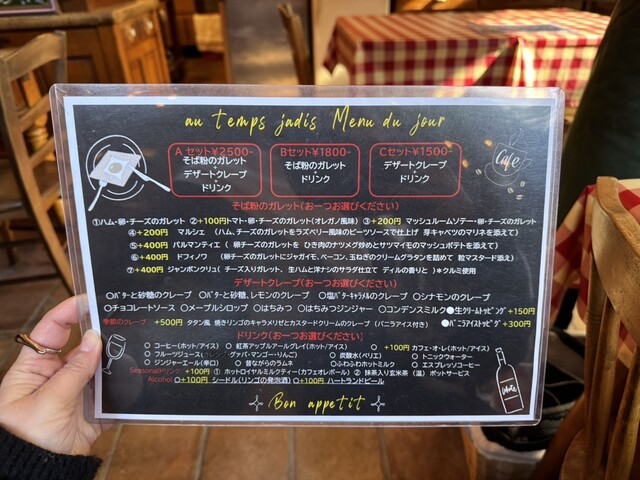 au temps jadis Menu du jour
Aセット¥2500-
そば粉のガレット
+
デザートクレープ
+
ドリンク
Bセット¥1800-
そば粉のガレット
+
ドリンク
Cセット¥1500-
デザートクレープ
+
ドリンク
Café
そば粉のガレット(お一つお選びください)
①ハム・卵・チーズのガレット ②+100円トマト・卵・チーズのガレット(オレガノ風味) ③+200円 マッシュルームソテー・卵・チーズのガレット
④+200円 マルシェ (ハム、チーズのガレットをラズベリー風味のビーツソースで仕上げ 芽キャベツのマリネを添えて)
⑤+400円 パルマンティエ ( 卵チーズのガレットを ひき肉のナツメグ炒めとサツマイモのマッシュポテトを添えて)
⑥+400円 ドフィノワ (卵チーズのガレットにジャガイモ、ベーコン、玉ねぎのクリームグラタンを詰めて 粒マスタード添え)
⑦+400円 ジャンボンクリュ( チーズ入りガレット、生ハムと洋ナシのサラダ仕立て ディルの香りと )*クルミ使用
デザートクレープ(お一つお選びください)
〇バターと砂糖のクレープ 〇バターと砂糖、レモンのクレープ 〇塩バターキャラメルのクレープ 〇シナモンのクレープ
〇チョコレートソース 〇メープルシロップ 〇はちみつ 〇はちみつジンジャー 〇コンデンスミルク●生クリームトッピング+150円
季節のクレープ +500円 タタン風 焼きリンゴのキャラメリゼとカスタードクリームのクレープ (バニラアイス付き) ●バニラアイストッピング+300円
ドリンク(お一つお選びください)
〇 コーヒー(ホット/アイス) 〇 紅茶アップルアールグレイ(ホット/アイス) 〇 +100円 カフェ・オレ(ホット/アイス)
〇 フルーツジュース( グァバ・マンゴー・りんご) 〇 炭酸水(ペリエ) 〇 トニックウォーター
〇 ジンジャーエール(辛口) 〇 昔ながらのラムネ 〇ふわふわホットミルク 〇 エスプレッソコーヒー
Seasonalドリンク +100円 ① ホットロイヤルミルクティー(カフェオレボール) ② 抹茶入り玄米茶 (温) ポットサービス
Alcohol 〇+100円 シードル(リンゴの発泡酒) 〇+100円 ハートランドビール
Bon appetit